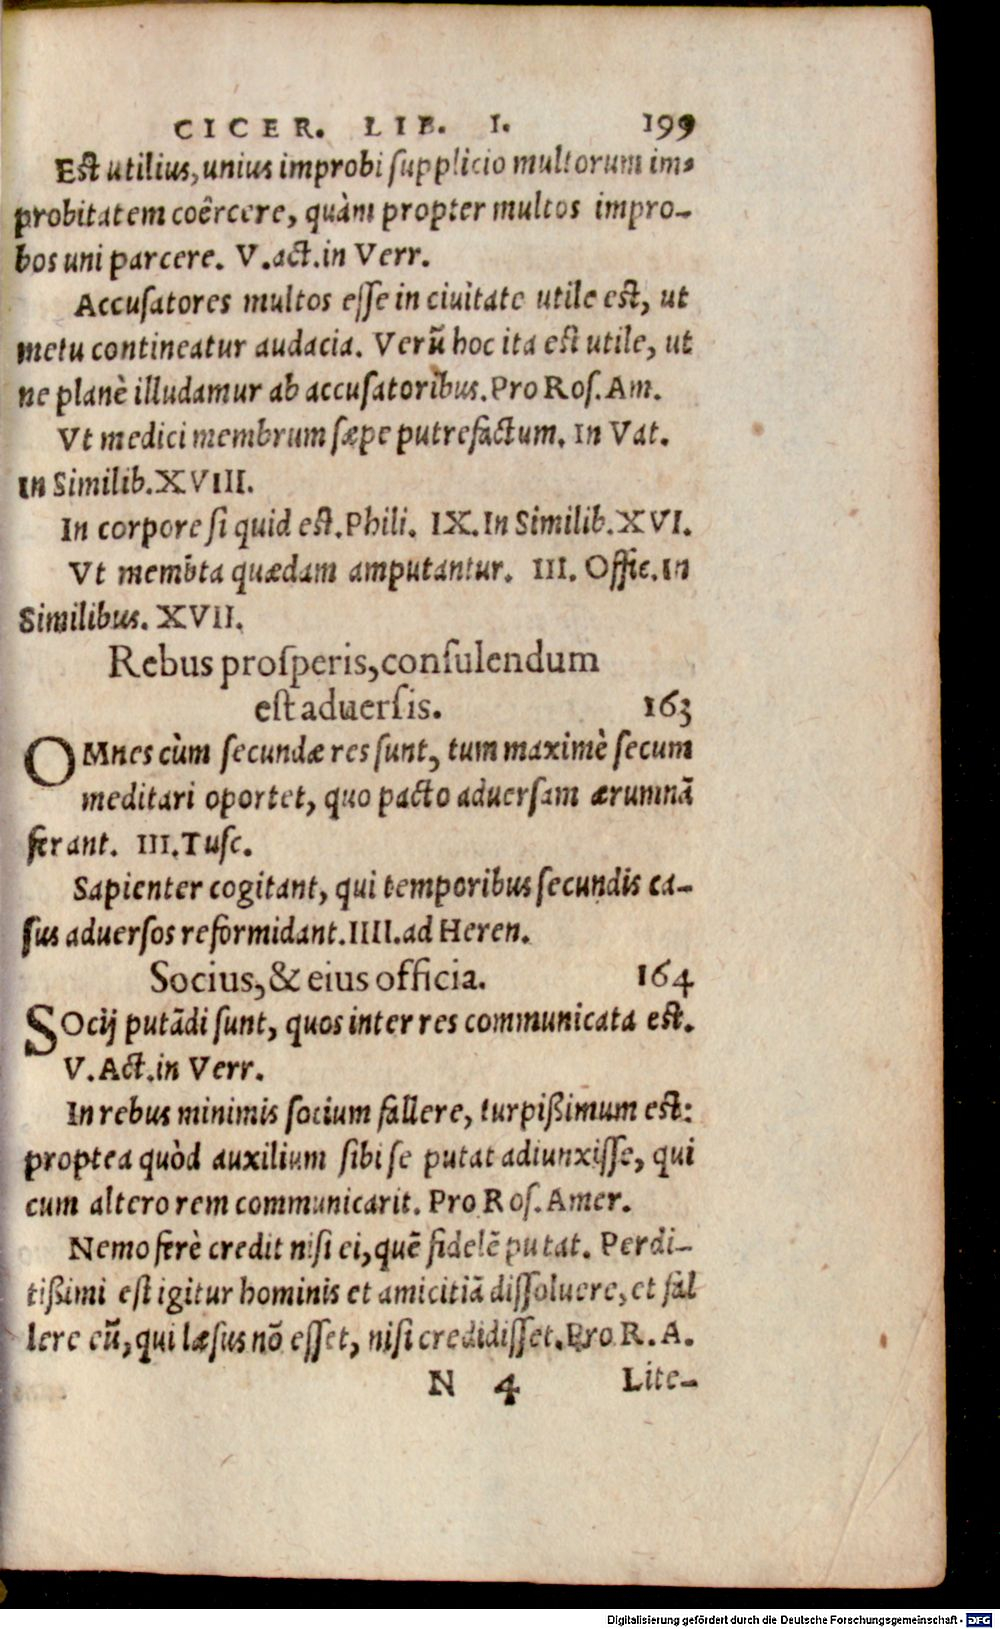 CICER. LIB. I. 199
Est utilius, unius improbi supplicio multorum im-
probitatem coêrcere, quàm propter multos impro-
bos uni parcere. V. act. in Verr.
Accusatores multos esse in ciuitate utile est, ut
metu contineatur audacia. Verũ hoc ita est utile, ut
ne planè illudamur ab accusatoribus. Pro Ros. Am.
Vt medici membrum sæpe putrefactum. In Vat.
In Similib. XVIII.
In corpore si quid est. Phili. IX. In Similib. XVI.
Vt membta quædam amputantur. III. Offic. In
Similibus. XVII.
Rebus prosperis, consulendum
est aduersis. 163
OMnes cùm secundæ res sunt, tum maximè secum
meditari oportet, quo pacto aduersam ærumnã
ferant. III. Tusc.
Sapienter cogitant, qui temporibus secundis ca-
sus aduersos reformidant. IIII. ad Heren.
Socius, & eius officia. 164
SOcij putãdi sunt, quos inter res communicata est.
V. Act. in Verr.
In rebus minimis socium fallere, turpißimum est:
proptea quòd auxilium sibi se putat adiunxisse, qui
cum altero rem communicarit. Pro Ros. Amer.
Nemo ferè credit nisi ei, quẽ fidelẽ putat. Perdi-
tißimi est igitur hominis et amicitiã dissoluere, et fal
lere eũ, qui læsus nõ esset, nisi credidisset. Pro R. A.
N 4 Lite-
Digitalisierung gefördert durch die Deutsche Forschungsgemeinschaft - DFG